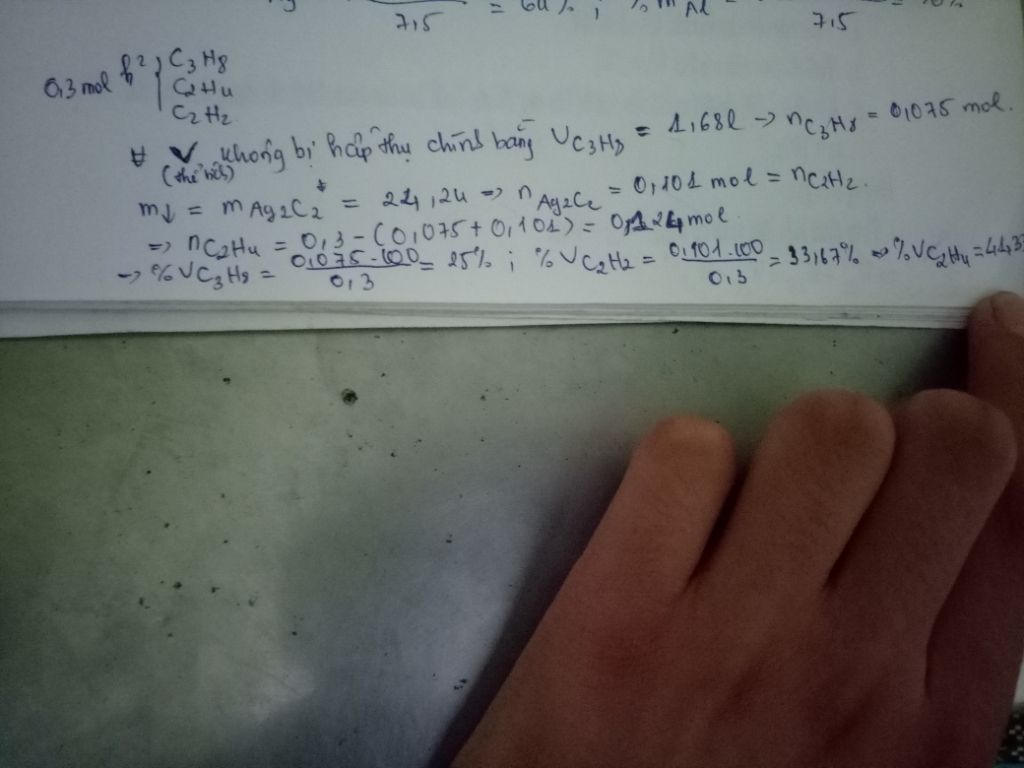 = 60% ; % mAl
7,5 7,5
0,3 mol h² { C3H8
C2H4
C2H2
∀ V không bị hấp thụ chính bằng VC3H8 = 1,68l → nC3H8 = 0,075 mol.
(thể tích)
m↓ = mAg2C2 = 24,24 => nAg2C2 = 0,101 mol = nC2H2.
=> nC2H4 = 0,3 - (0,075 + 0,101) = 0,124 mol
→ %VC3H8 = 0,075.100 / 0,3 = 25% ; %VC2H2 = 0,101.100 / 0,3 = 33,67% => %VC2H4 = 41,3